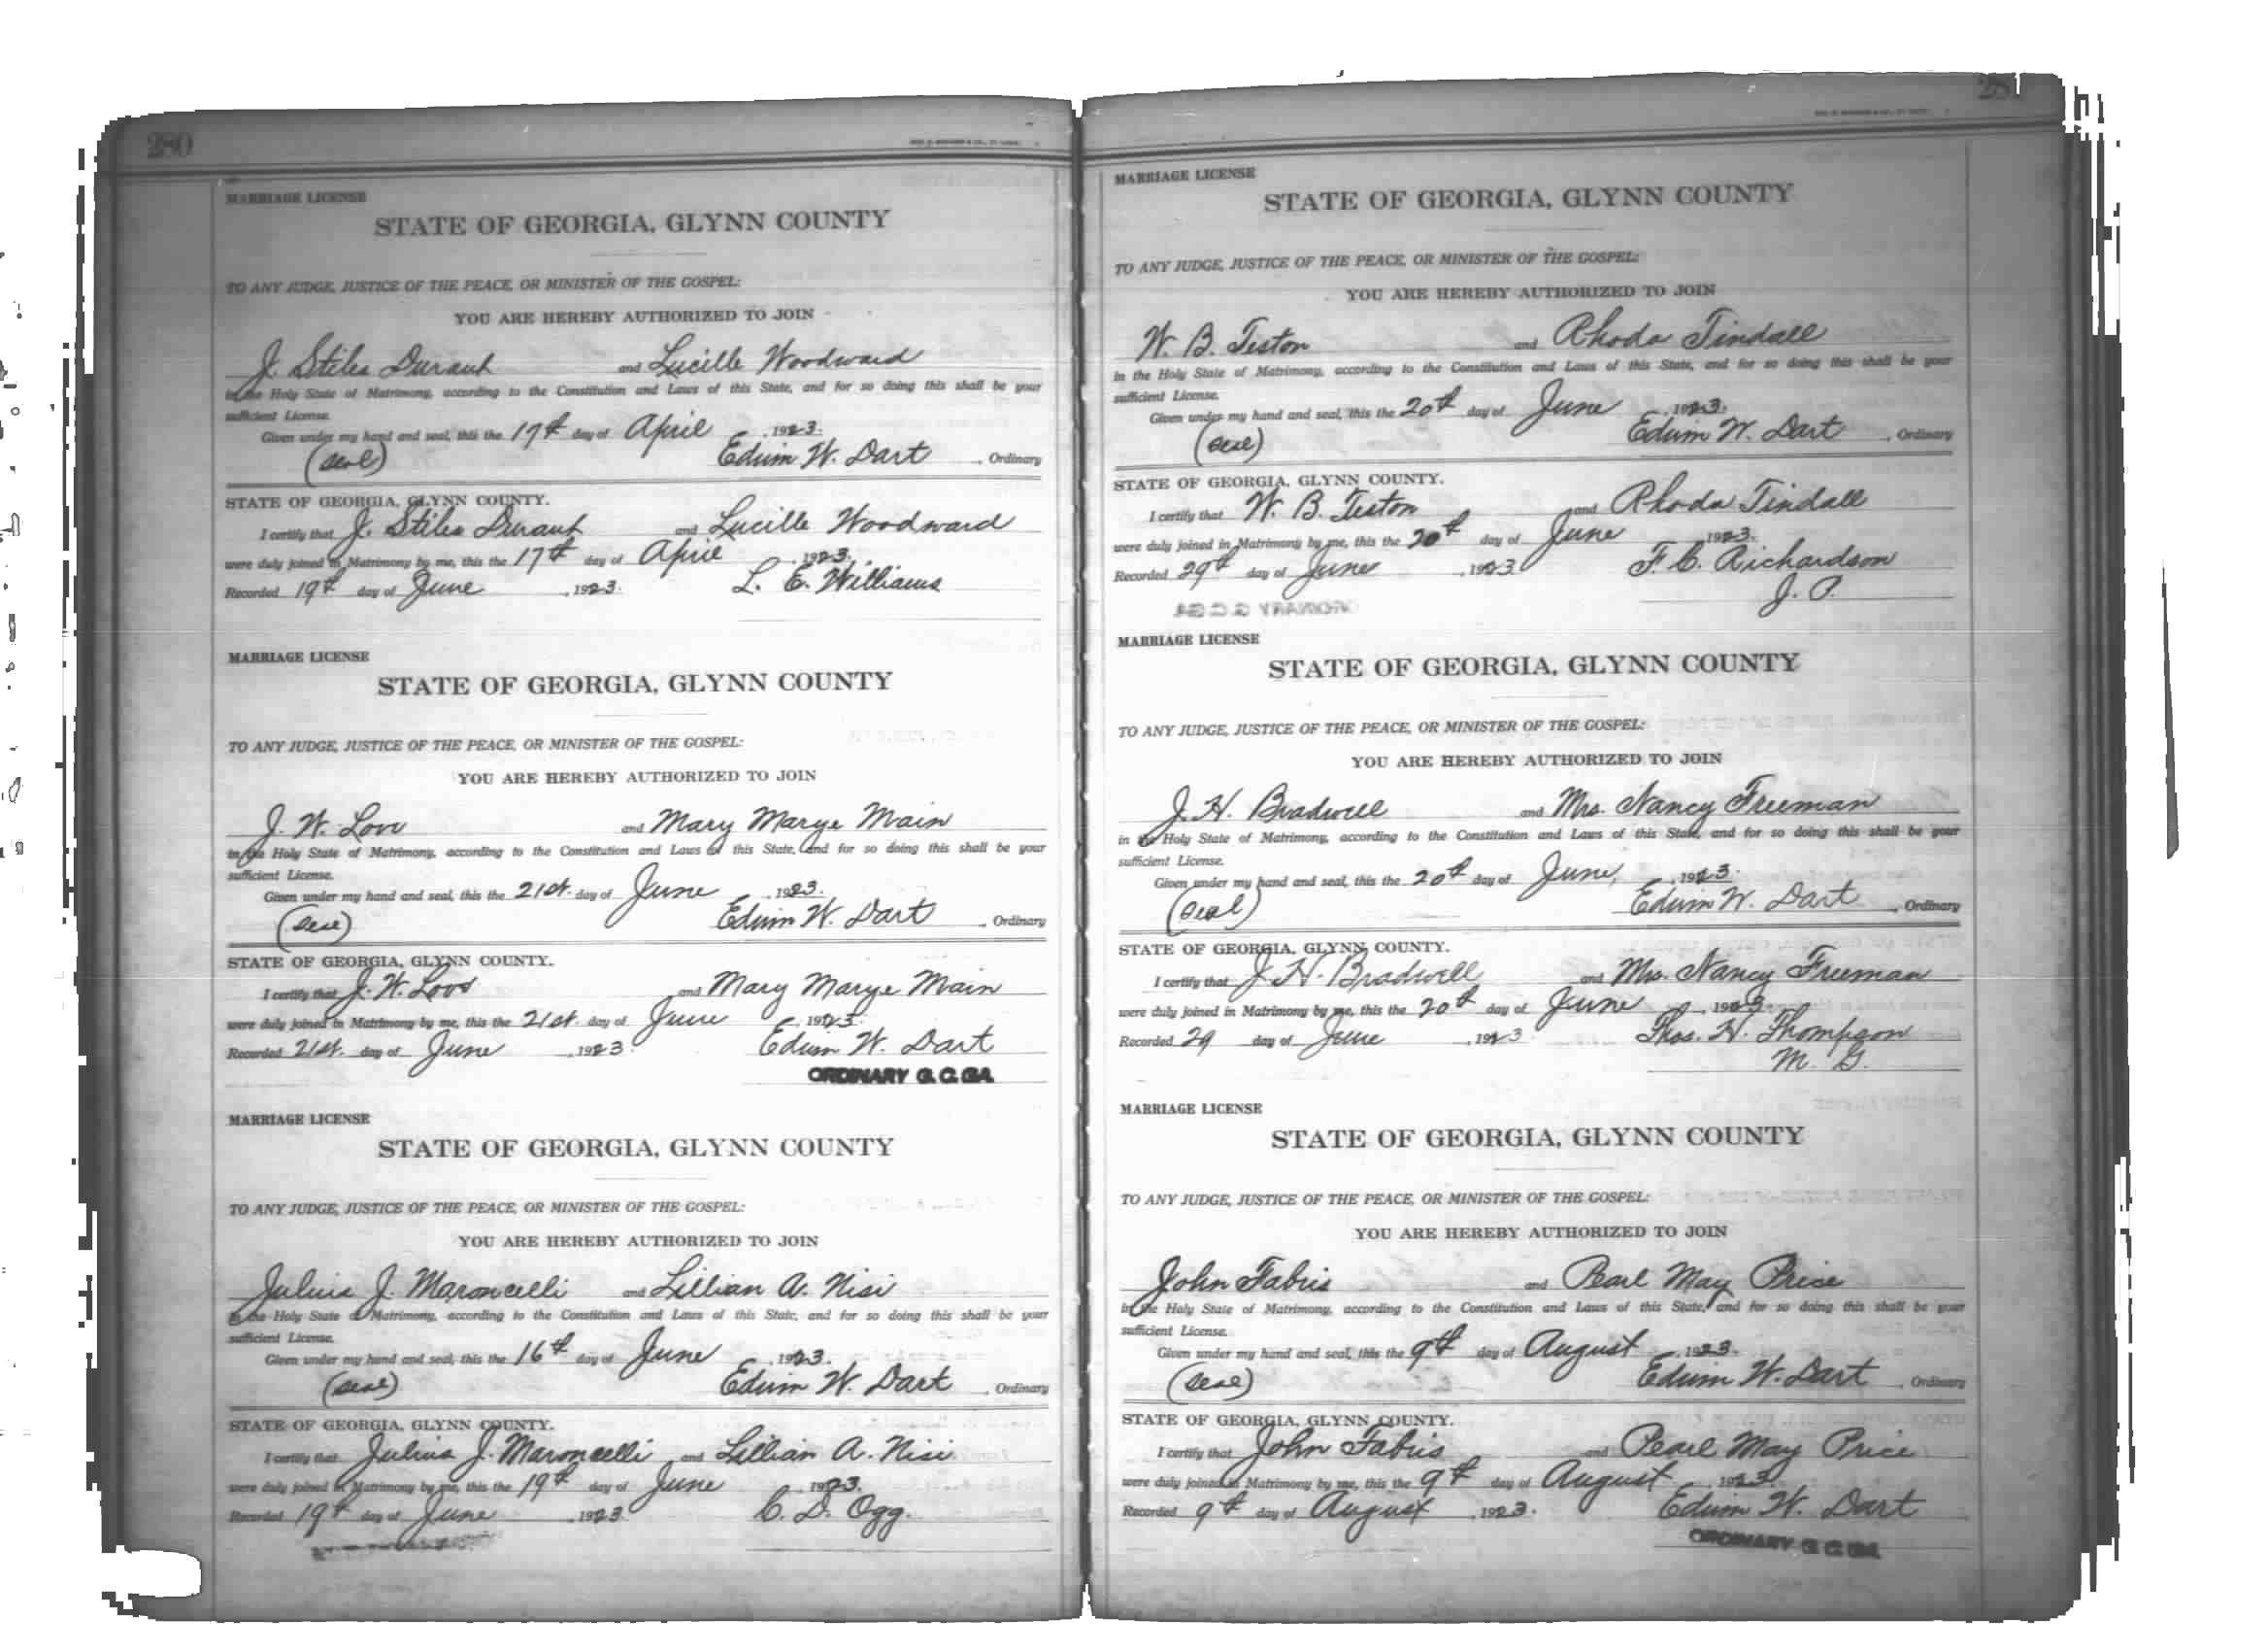 280
MARRIAGE LICENSE
STATE OF GEORGIA, GLYNN COUNTY
TO ANY JUDGE, JUSTICE OF THE PEACE, OR MINISTER OF THE GOSPEL:
YOU ARE HEREBY AUTHORIZED TO JOIN
J. Stiles Durant and Lucille Woodward
in the Holy State of Matrimony, according to the Constitution and Laws of this State, and for so doing this shall be your
sufficient License.
Given under my hand and seal, this the 17th day of April, 1923.
(seal) Edwin W. Dart, Ordinary
STATE OF GEORGIA, GLYNN COUNTY.
I certify that J. Stiles Durant and Lucille Woodward
were duly joined in Matrimony by me, this the 17th day of April, 1923.
Recorded 19th day of June, 1923. L. E. Williams
MARRIAGE LICENSE
STATE OF GEORGIA, GLYNN COUNTY
TO ANY JUDGE, JUSTICE OF THE PEACE, OR MINISTER OF THE GOSPEL:
YOU ARE HEREBY AUTHORIZED TO JOIN
J. W. Love and Mary Marye Main
in the Holy State of Matrimony, according to the Constitution and Laws of this State, and for so doing this shall be your
sufficient License.
Given under my hand and seal, this the 21st. day of June, 1923.
(seal) Edwin W. Dart, Ordinary
STATE OF GEORGIA, GLYNN COUNTY.
I certify that J. W. Love and Mary Marye Main
were duly joined in Matrimony by me, this the 21st. day of June, 1923.
Recorded 21st. day of June, 1923. Edwin W. Dart
ORDINARY G. C. GA.
MARRIAGE LICENSE
STATE OF GEORGIA, GLYNN COUNTY
TO ANY JUDGE, JUSTICE OF THE PEACE, OR MINISTER OF THE GOSPEL:
YOU ARE HEREBY AUTHORIZED TO JOIN
Julius J. Maroncelli and Lillian A. Nisi
in the Holy State of Matrimony, according to the Constitution and Laws of this State, and for so doing this shall be your
sufficient License.
Given under my hand and seal, this the 16th day of June, 1923.
(seal) Edwin W. Dart, Ordinary
STATE OF GEORGIA, GLYNN COUNTY.
I certify that Julius J. Maroncelli and Lillian A. Nisi
were duly joined in Matrimony by me, this the 19th day of June 1923.
Recorded 19th day of June, 1923. C. D. Ogg.
281
MARRIAGE LICENSE
STATE OF GEORGIA, GLYNN COUNTY
TO ANY JUDGE, JUSTICE OF THE PEACE, OR MINISTER OF THE GOSPEL:
YOU ARE HEREBY AUTHORIZED TO JOIN
W. B. Teston and Rhoda Tindall
in the Holy State of Matrimony, according to the Constitution and Laws of this State, and for so doing this shall be your
sufficient License.
Given under my hand and seal, this the 20th day of June, 1923.
(seal) Edwin W. Dart, Ordinary
STATE OF GEORGIA, GLYNN COUNTY.
I certify that W. B. Teston and Rhoda Tindall
were duly joined in Matrimony by me, this the 20th day of June 1923.
Recorded 29th day of June, 1923 F. C. Richardson
J. P.
MARRIAGE LICENSE
STATE OF GEORGIA, GLYNN COUNTY
TO ANY JUDGE, JUSTICE OF THE PEACE, OR MINISTER OF THE GOSPEL:
YOU ARE HEREBY AUTHORIZED TO JOIN
J. H. Bradwell and Mrs. Nancy Freeman
in the Holy State of Matrimony, according to the Constitution and Laws of this State, and for so doing this shall be your
sufficient License.
Given under my hand and seal, this the 20th day of June, 1923.
(seal) Edwin W. Dart, Ordinary
STATE OF GEORGIA, GLYNN COUNTY.
I certify that J. H. Bradwell and Mrs. Nancy Freeman
were duly joined in Matrimony by me, this the 20th day of June, 1923.
Recorded 29 day of June, 1923 Thos. H. Thompson
M. G.
MARRIAGE LICENSE
STATE OF GEORGIA, GLYNN COUNTY
TO ANY JUDGE, JUSTICE OF THE PEACE, OR MINISTER OF THE GOSPEL:
YOU ARE HEREBY AUTHORIZED TO JOIN
John Fabris and Pearl May Price
in the Holy State of Matrimony, according to the Constitution and Laws of this State, and for so doing this shall be your
sufficient License.
Given under my hand and seal, this the 9th day of August, 1923.
(seal) Edwin W. Dart, Ordinary
STATE OF GEORGIA, GLYNN COUNTY.
I certify that John Fabris and Pearl May Price
were duly joined in Matrimony by me, this the 9th day of August, 1923
Recorded 9th day of August, 1923. Edwin W. Dart
ORDINARY G. C. GA.